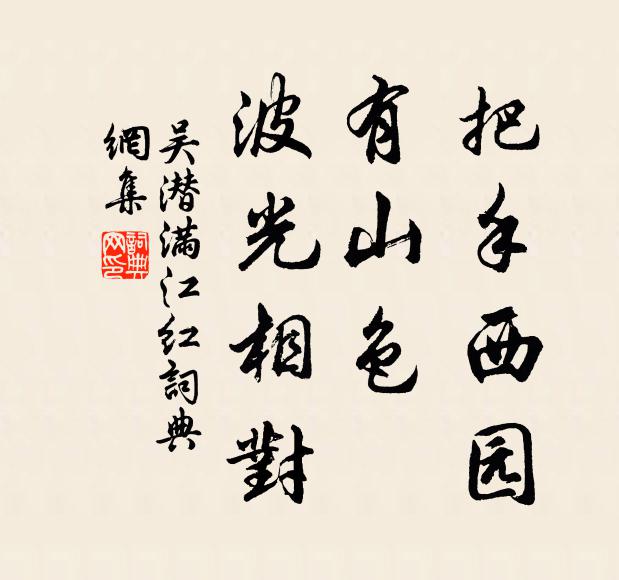 把手西园
有山色
波光相對
吴潛滿江红詞典
網集
詞典
网印